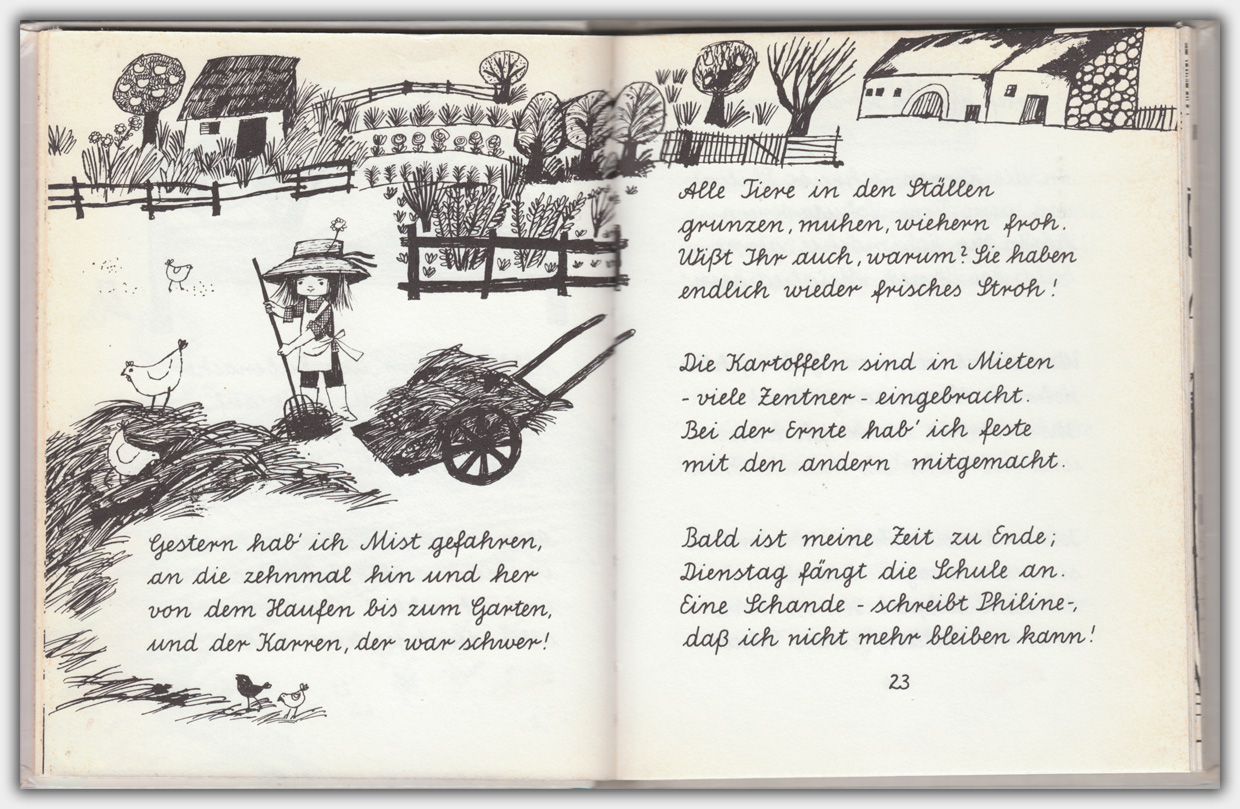 Gestern hab' ich Mist gefahren,
an die zehnmal hin und her
von dem Haufen bis zum Garten,
und der Karren, der war schwer!
Alle Tiere in den Ställen
grunzen, muhen, wiehern froh.
Wißt Ihr auch, warum? Sie haben
endlich wieder frisches Stroh!
Die Kartoffeln sind in Mieten
- viele Zentner - eingebracht.
Bei der Ernte hab' ich feste
mit den andern mitgemacht.
Bald ist meine Zeit zu Ende;
Dienstag fängt die Schule an.
Eine Schande - schreibt Philine-,
daß ich nicht mehr bleiben kann!
23